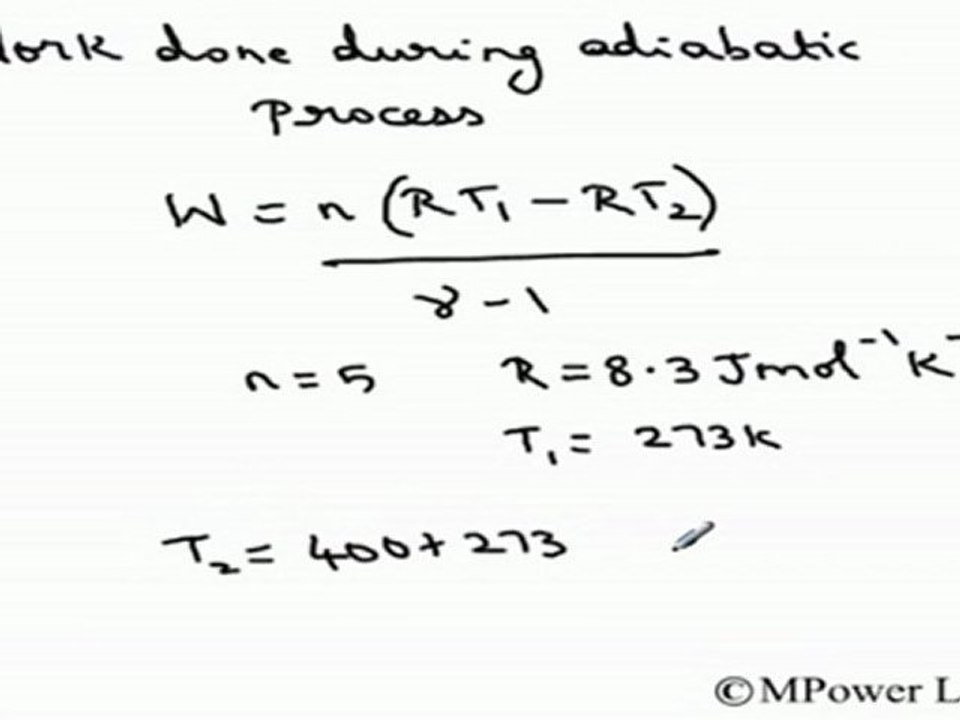 ork done during adiabatic
process
W = n (RT₁ - RT₂)
γ - 1
n = 5 R = 8.3 Jmol⁻¹K⁻
T₁ = 273K
T₂ = 400 + 273
©MPower L